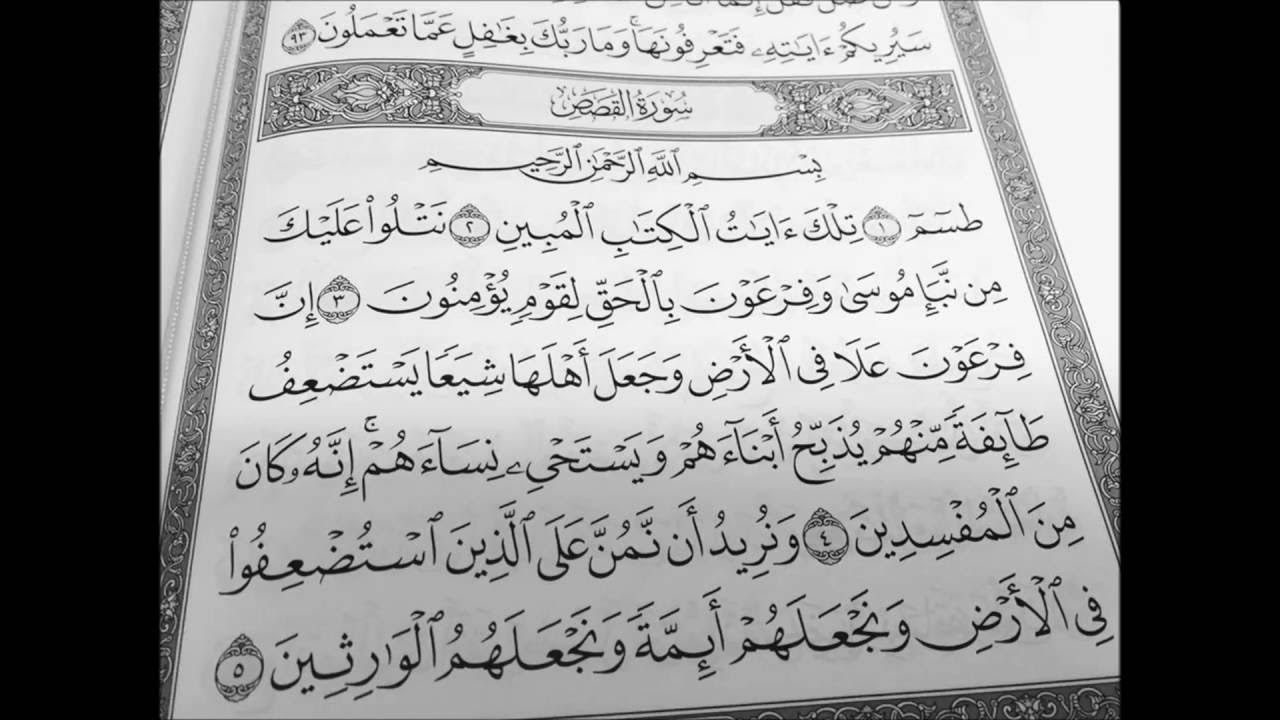 سَيُرِيكُمْ ءَايَـٰتِهِۦ فَتَعْرِفُونَهَا ۚ وَمَا رَبُّكَ بِغَـٰفِلٍ عَمَّا تَعْمَلُونَ ٩٣
سُورَةُ القَصَصِ
بِسْمِ ٱللَّهِ ٱلرَّحْمَـٰنِ ٱلرَّحِيمِ
طسٓمٓ ١ تِلْكَ ءَايَـٰتُ ٱلْكِتَـٰبِ ٱلْمُبِينِ ٢ نَتْلُوا۟ عَلَيْكَ
مِن نَّبَإِ مُوسَىٰ وَفِرْعَوْنَ بِٱلْحَقِّ لِقَوْمٍ يُؤْمِنُونَ ٣ إِنَّ
فِرْعَوْنَ عَلَا فِى ٱلْأَرْضِ وَجَعَلَ أَهْلَهَا شِيَعًا يَسْتَضْعِفُ
طَآئِفَةً مِّنْهُمْ يُذَبِّحُ أَبْنَآءَهُمْ وَيَسْتَحْىِۦ نِسَآءَهُمْ ۚ إِنَّهُۥ كَانَ
مِنَ ٱلْمُفْسِدِينَ ٤ وَنُرِيدُ أَن نَّمُنَّ عَلَى ٱلَّذِينَ ٱسْتُضْعِفُوا۟
فِى ٱلْأَرْضِ وَنَجْعَلَهُمْ أَئِمَّةً وَنَجْعَلَهُمُ ٱلْوَٰرِثِينَ ٥